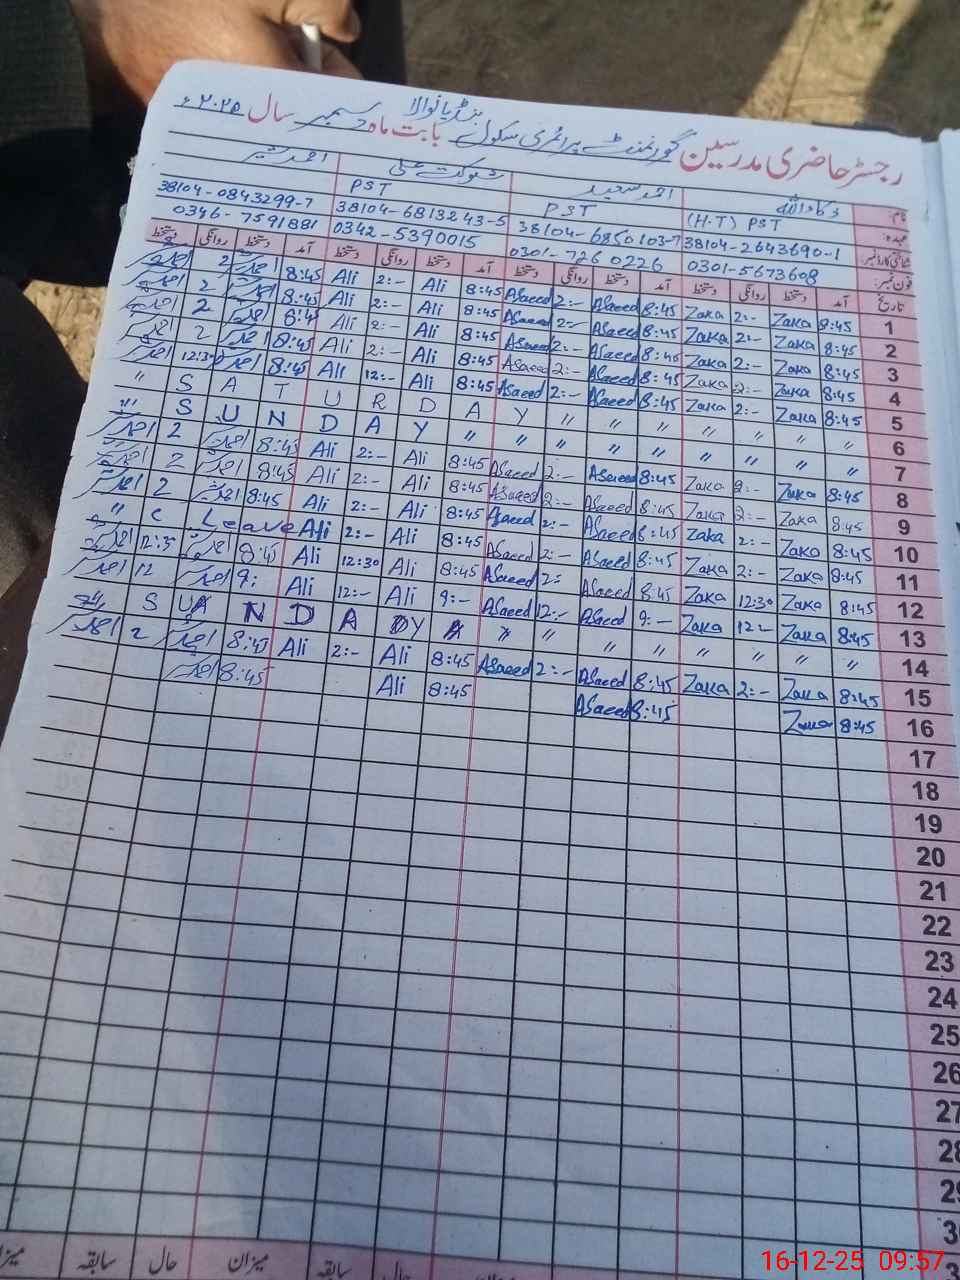 رجسٹر حاضری مدرسین گورنمنٹ پرائمری سکول بابت ماہ دسمبر سال ۲۰۲۵ء
نام: ذکاء اللہ احمد سعید شوکت علی احمد شیر
عہدہ: (H.T) PST PST PST
شناختی کارڈ نمبر: 38104-2643690-1 38104-6850103-7 38104-6813243-5 38104-0843299-7
فون نمبر: 0301-5673608 0301-7260226 0342-5390015 0346-7591881
تاریخ آمد دستخط روانگی دستخط آمد دستخط روانگی دستخط آمد دستخط روانگی دستخط آمد دستخط روانگی دستخط
1 8:45 Zaka 2:- Zaka 8:45 ASaeed 2:- ASaeed 8:45 Ali 2:- Ali 8:45 احمد 2
2 8:45 Zaka 2:- Zaka 8:45 ASaeed 2:- ASaeed 8:45 Ali 2:- Ali 8:45 احمد 2 احمد
3 8:45 Zaka 2:- Zaka 8:45 ASaeed 2:- ASaeed 8:45 Ali 2:- Ali 8:45 احمد 2 احمد
4 8:45 Zaka 2:- Zaka 8:45 ASaeed 2:- ASaeed 8:45 Ali 2:- Ali 8:45 احمد 2 احمد
5 8:45 Zaka 2:- Zaka 8:45 ASaeed 2:- ASaeed 8:45 Ali 12:- Ali 8:45 احمد 12:30 احمد
6 " " " " " " " Y A D R U T A S "
7 " " " " " " " " Y A D N U S "
8 8:45 Zaka 2:- Zaka 8:45 ASaeed 2:- ASaeed 8:45 Ali 2:- Ali 8:45 احمد 2 احمد
9 8:45 Zaka 2:- Zaka 8:45 ASaeed 2:- ASaeed 8:45 Ali 2:- Ali 8:45 احمد 2
10 8:45 Zaka 2:- Zaka 8:45 ASaeed 2:- ASaeed 8:45 Ali 2:- Ali 8:45 احمد 2 احمد
11 8:45 Zaka 2:- Zaka 8:45 ASaeed 2:- ASaeed 8:45 Ali 2:- Ali Leave C "
12 8:45 Zaka 12:30 Zaka 8:45 ASaeed 2: ASaeed 8:45 Ali 12:30 Ali 8:45 احمد احمد
13 8:45 Zaka 12:- Zaka 9:- ASaeed 12:- ASaeed 9:- Ali 12:- Ali 9: احمد 12 احمد
14 " " " " " " " Y D A D N U S
15 8:45 Zaka 2:- Zaka 8:45 ASaeed 2:- ASaeed 8:45 Ali 2:- Ali 8:45 احمد 2 احمد
16 8:45 Zaka 8:45 ASaeed 8:45 Ali 8:45 احمد
17
18
19
20
21
22
23
24
25
26
27
28
29
میزان حال سابقہ میزان حال سابقہ
16-12-25 09:57